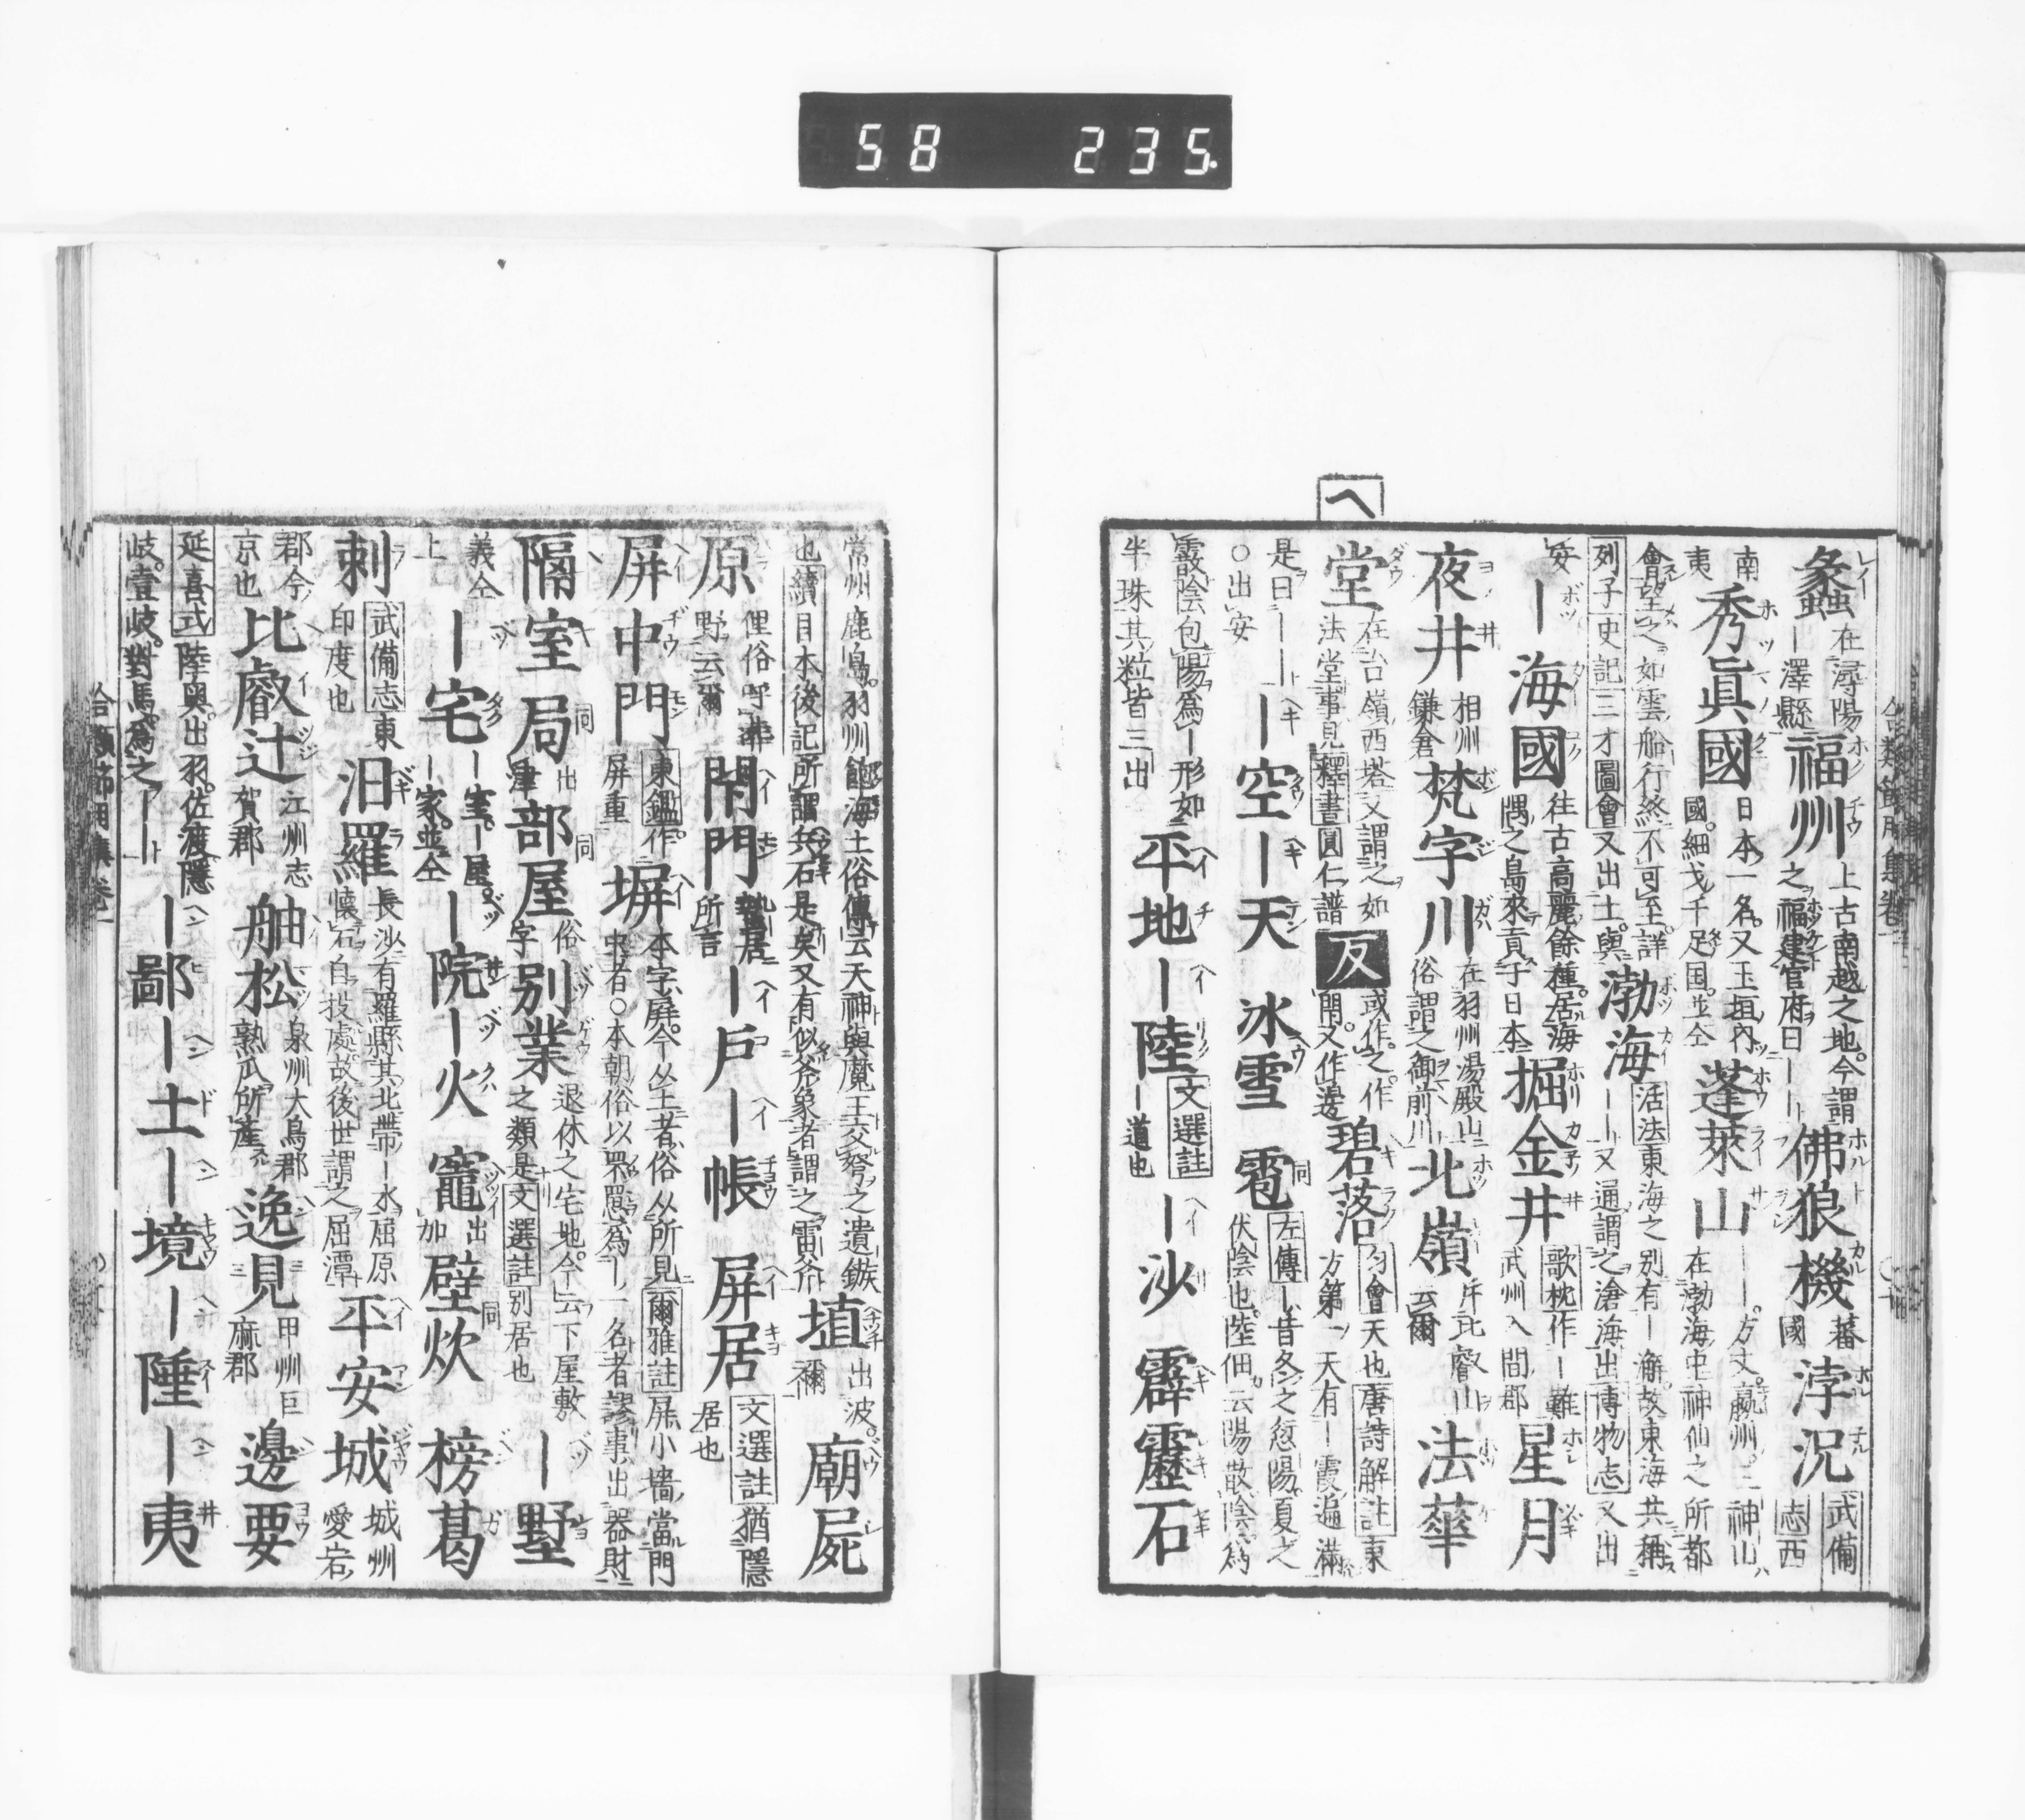 58 235
ヘ
蠡 在潯陽ー澤縣 福州 上古南越之地。今謂之福建官府曰ーー 佛狼機 蕃國 浡況 武備志西
南夷 秀眞國 日本一名。又玉垣内國。細戈千足国。並仝 蓬萊山 ーー。方丈。瀛州。三神山在渤海中神仙之所都
會望之如雲船行終不可至。詳列子史記三才圖會又出土。與 渤海 活法東海之別有ー澥故東海共稱ーー又通謂之滄海出博物志又出
安 ー海國 往古高麗餘種。居海隅之島來貢于日本 掘金井 歌枕作ー難武州入間郡 星月
夜井 相州鎌倉 梵字川 在羽州湯殿山俗謂之御前川 北嶺 比叡山云爾 法華
堂 在台嶺西塔又謂之如法堂事見釋書圓仁譜 反 或作之。作閇。又作邊 碧落 匀會天也唐詩解註東方第一天有ー霞遍滿
是曰ーー○出安 ー空 ー天 冰雪 雹 左傳ー昔冬之愆陽夏之伏陰也。陸佃云陽散陰爲
霰陰包陽爲ー形如半珠其粒皆三出 平地 ー陸 文選註ー道也 ー沙 霹靂石
常州鹿島。羽州飽海土俗傳云天神與魔王交弩之遺鏃也續日本後記所謂兵石是矣又有似斧象者謂之雷斧 埴 出波。禰 廟屍
原 俚俗呼葬野云爾 閇門 蟄居所言 ー戶 ー帳 屏居 文選註猶隱居也
屏中門 東鑑作屏重 塀 本字屏。今从土者俗从所見爾雅註屏小墻當門中者○本朝俗以罘罳爲ー一名者謬事出器財
隔室 局 出津 部屋 俗字 別業 退休之宅地。今云下屋敷之類是文選註別居也 ー墅
義仝上 ー宅 ー室。ー屋。ー家。並仝 ー院 ー火 竈 出加 壁炊 榜葛
剌 武備志東印度也 汨羅 長沙有羅縣其北帶ー水屈原懷石自投處故後世謂之屈潭 平安城 城州愛宕
郡今京也 比叡辻 江州志賀郡 舳松 泉州大鳥郡熟瓜所產 逸見 甲州巨麻郡 邊要
延喜式陸奧。出羽。佐渡隱岐。壹岐。對馬。爲之ーー ー鄙 ー土 ー境 ー陲 ー夷
合類節用集卷一